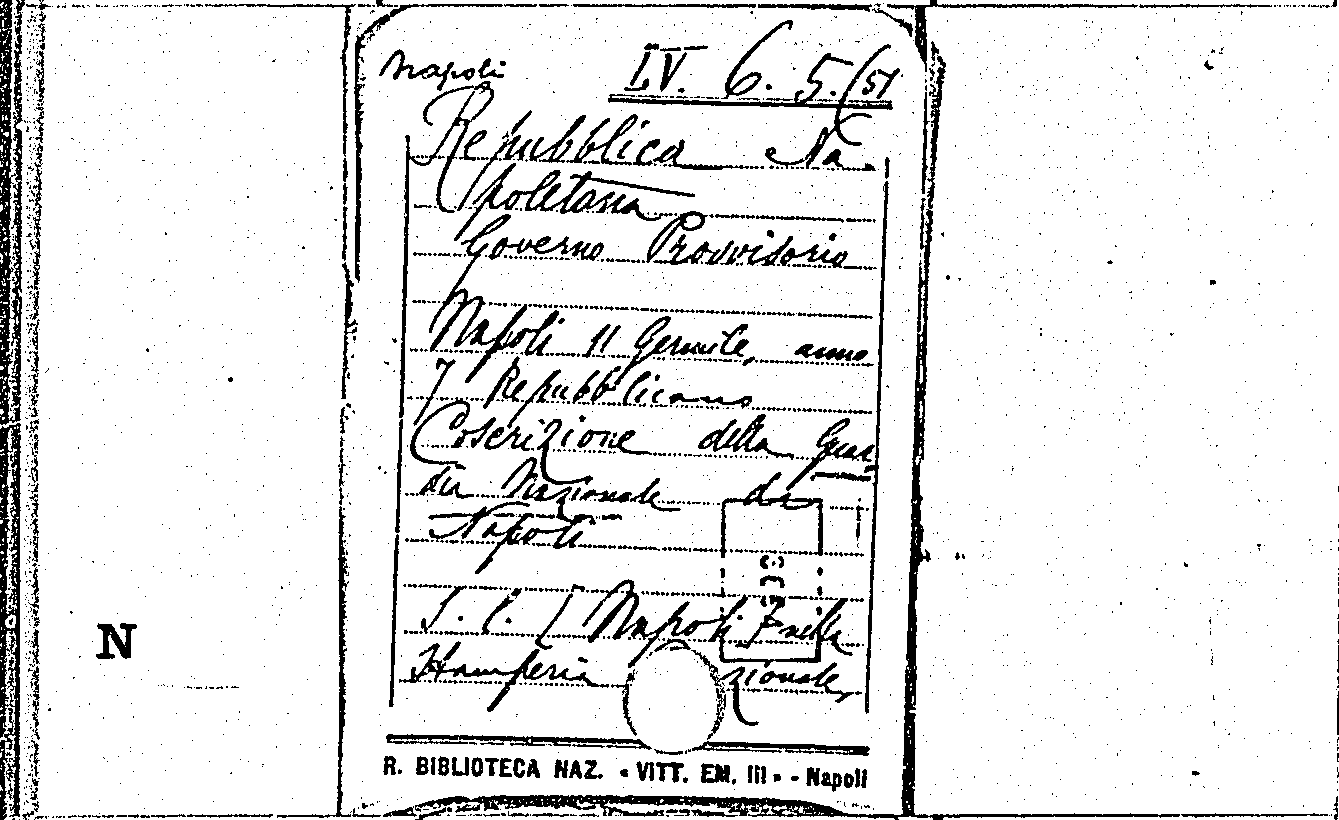 Napoli
I.V. 6. 5. (51
Repubblica Na-
poletana
Governo Provvisorio
Napoli 11 Germile, anno
7 Repubblicano
Coscrizione della Guar-
dia Nazionale di
Napoli
S. l. [Napoli] nella
Stamperia zionale,
N
R. BIBLIOTECA NAZ. « VITT. EM. III » - Napoli